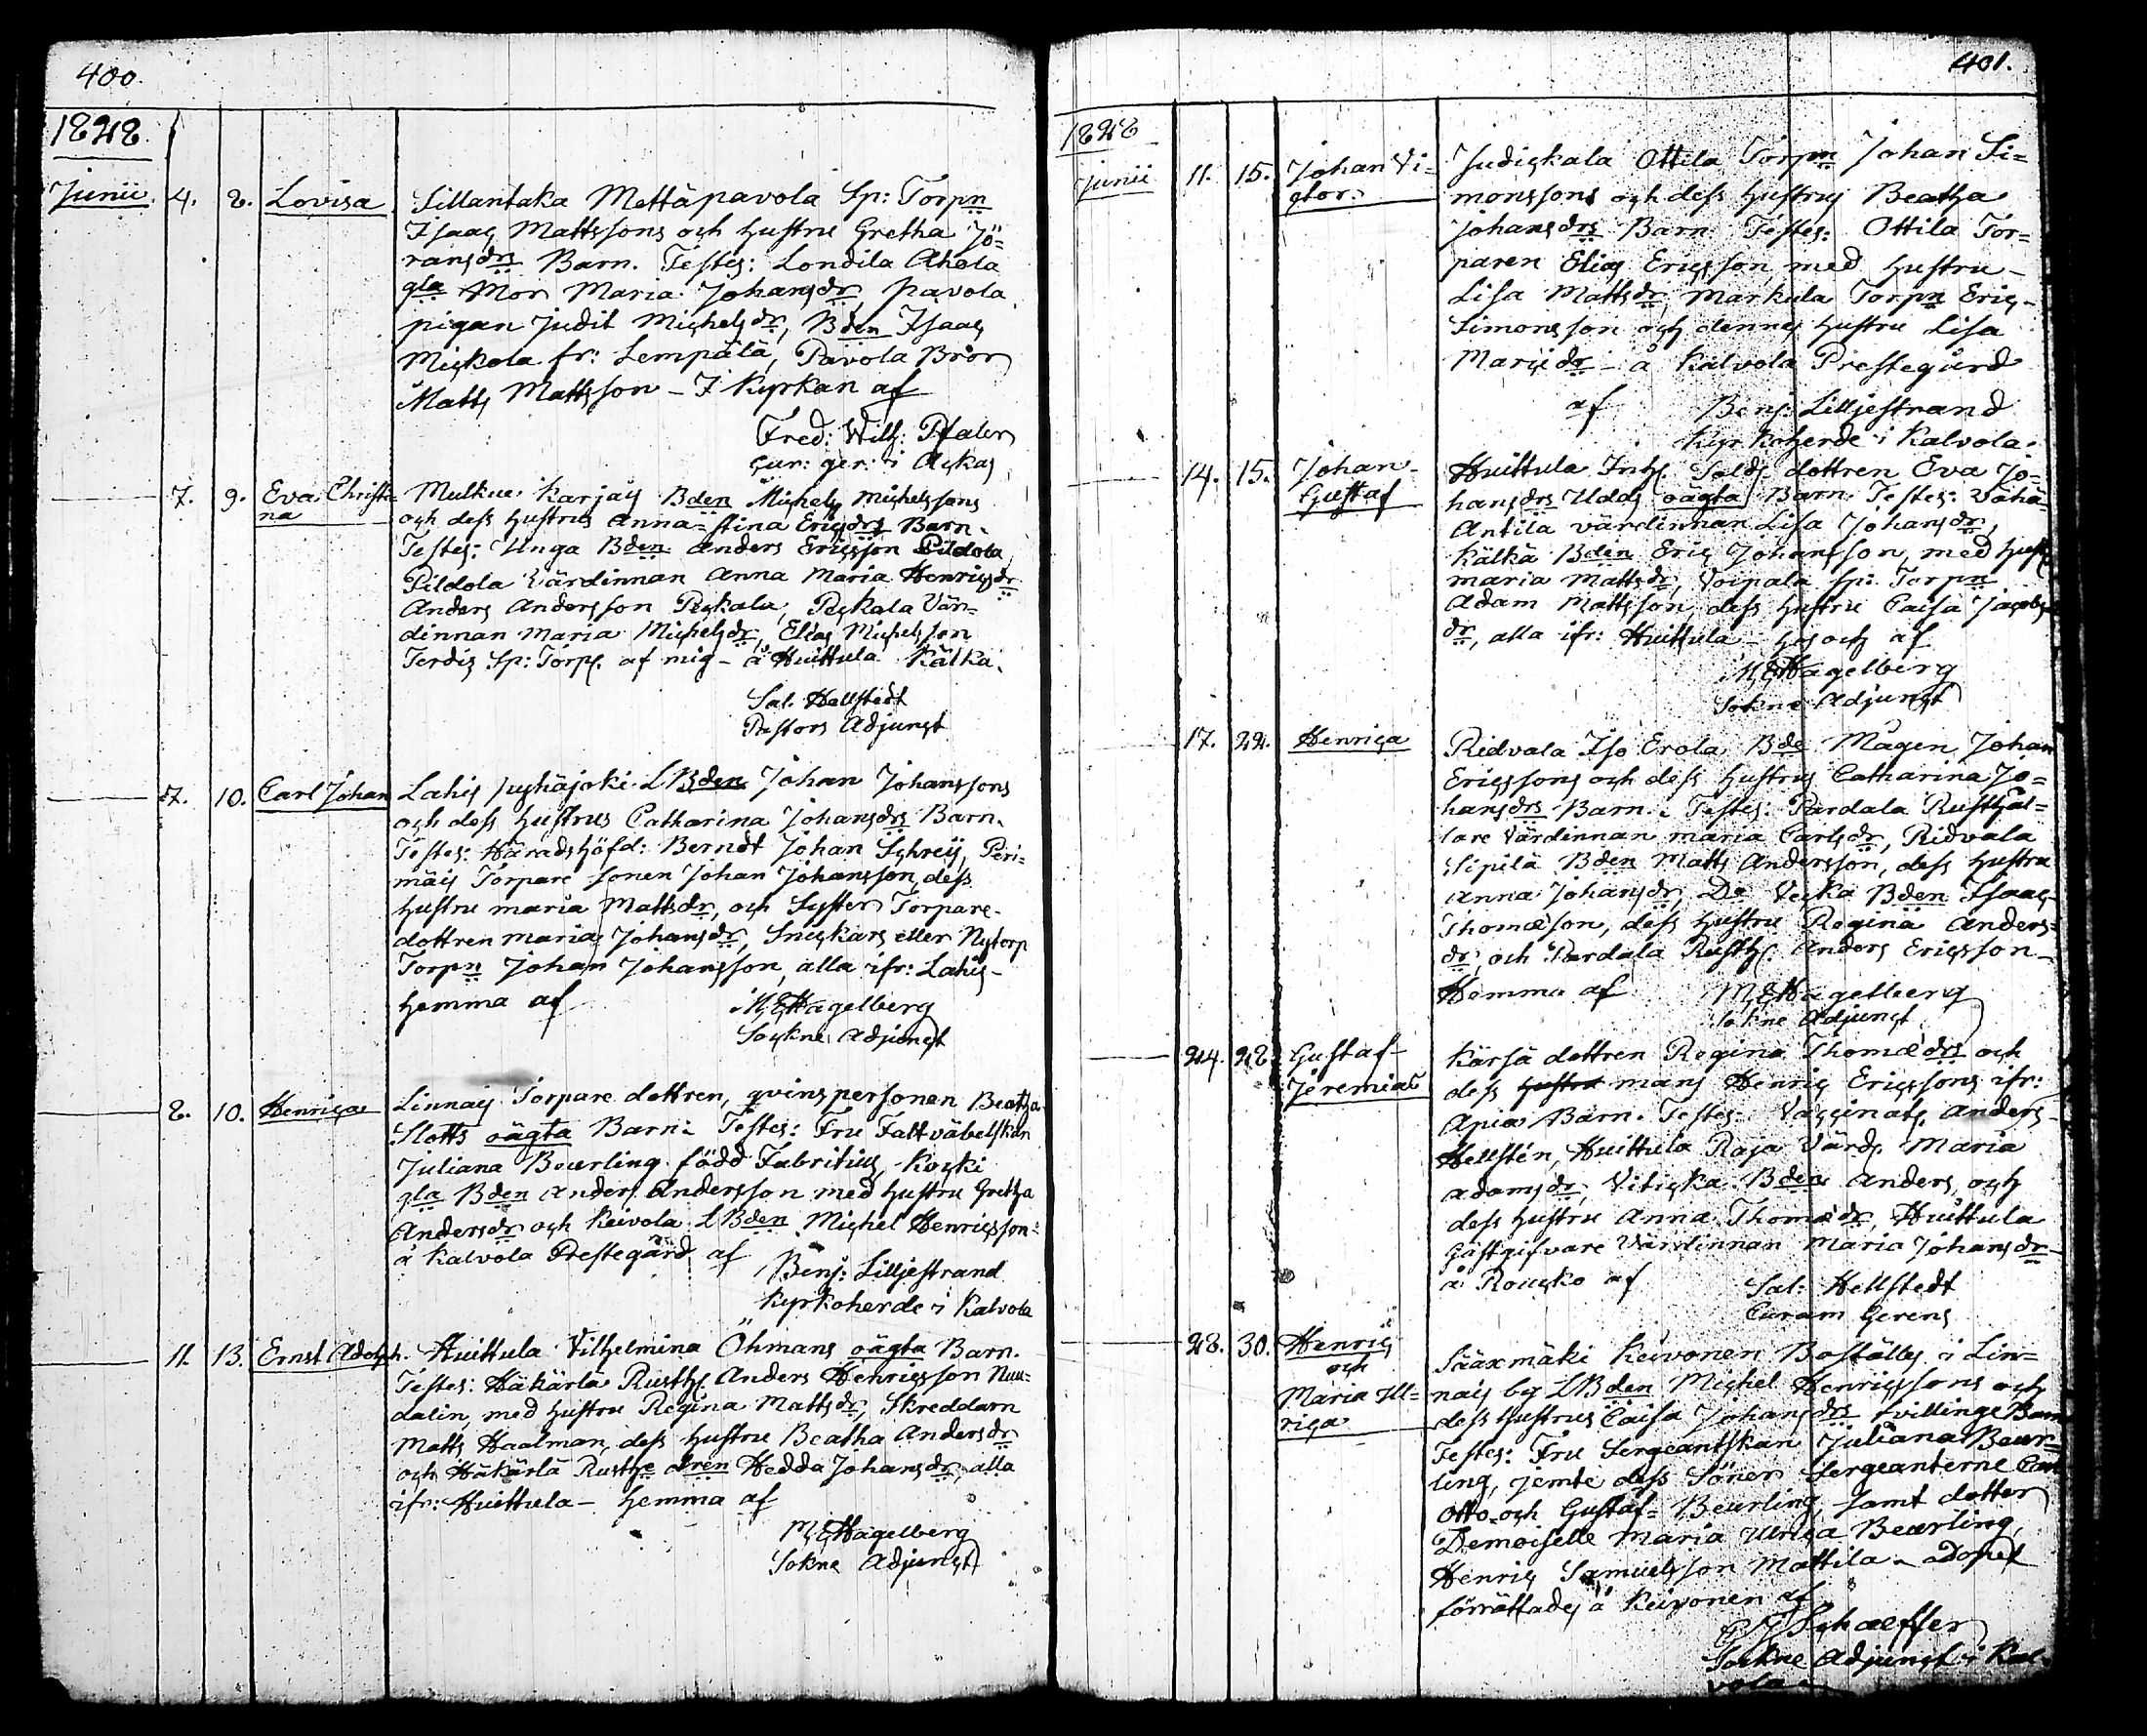 400.
1828.
Junii. 4. 8. Lovisa Sillantaka Mettäpavola Sp: Torpn
Isaac Mattssons och hustru Gretha Jö=
ransdrs Barn. Testes: Londila Ahola
gla Mor Maria Johansdr, Pavola
pigan Judit Michelsdr, Bden Isaac
Mickola fr: Lempälä, Pavola Bror
Matts Mattsson – I kyrkan af
Fred: Wilh: Pfaler
Cur: ger: i Ackas
7. 9. Eva Christi=
na
Mulkue Karjais Bden Michels Michelssons
och dess hustrus Anna=Stina Ericsdrs Barn.
Testes: Unga Bden Anders Ericsson Pildola
Pildola Värdinnan Anna Maria Henricsdr
Anders Andersson Peckala, Peckala Vär=
dinnan Maria Michelsdr, Elias Michelsson
Terdis Sp: Torp. af mig – å Huittula Kälkä.
Sal. Hellstedt
Pastors Adjunct
7. 10. Carl Johan Lahis pyhäjoki LBden Johan Johanssons
och dess hustrus Catharina Johansdrs Barn.
Testes: Häradshöfd: Berndt Johan Schreij, Peri=
mäis Torpare sonen Johan Johansson, dess
hustru Maria Mattsdr, och Syster Torpare-
dottren Maria Johansdr, Snickars eller Nytorp
Torpn Johan Johansson, alla ifr: Lahis –
hemma af
M E Hagelberg
Sockne Adjunct
8. 10. Henrica Linnais Torpare dottren, qvinspersonen Beatha
Slotts oägta Barn. Testes: Fru Faltväbelskan
Juliana Beurling född Fabritius, Koski
gla Bden Anders Andersson med hustru Gretha
Andersdr och Keivola LBden Michel Henricsson –
å Kalvola Prestegård af
Benj: Lilljestrand
Kyrkoherde i Kalvola
11. 13. Ernst Adolph. Huittula Vilhelmina Öhmans oägta Barn.
Testes: Häkärlä Rusth. Anders Henricsson Nuu=
dalin, med hustru Regina Mattsdr, Skreddarn
Matts Haalman, dess hustru Beatha Andersdr
och Häkärlä Rusthe dren Hedda Johansdr, alla
ifr: Huittula – hemma af
M E Hagelberg
Sokne Adjunct
401.
1828
Junii 11. 15. Johan Vi=
ctor.
Judickala Ottila Torpn Johan Si=
monssons och dess hustrus Beatha
Johansdrs Barn. Testes: Ottila Tor=
paren Elias Ericsson med hustru –
Lisa Mattsdr, Markula Torpn Eric –
Simonsson och dennes hustru Lisa
Maricdr – å Kalvola Prestegård
af Benj: Lilljestrand
Kyrkoherde i Kalvola.
14. 15. Johan
Gustaf
Huittula Inh. Sold. dottren Eva Jo=
hansdrs Udds oägta Barn. Testes: Vähä
Antila värdinnan Lisa Johansdr,
Kälkä Bden Eric Johansson, med hust.
Maria Mattsdr, Voipala Sp: Torpn
Adam Mattsson dess hustru Caisa Jacobs
dr, alla ifr: Huittula – hos och af
M E Hagelberg
Sokne Adjunct
17. 22. Henrica Ridvala Iso Erola Bde Mågen Johan
Ericssons och dess hustrus Catharina Jo=
hansdrs Barn. Testes: Pardala Rusthål=
lare Värdinnan Maria Carlsdr, Ridvala
Sipilä Bden Matts Andersson, dess hustru
Anna Johansdr, Do Vecka Bden Isaac
Thomæson, dess hustru Regina Anders=
dr, och Pardala Rusth. Anders Ericsson –
Hemma af
M E Hagelberg
Sokne Adjunct
24. 28. Gustaf
Jeremias
Kärsä dottren Regina Thomædrs och
dess hustru mans Henric Ericssons ifr:
Apia Barn. Testes: Vaccinat. Anders
Hellstén, Huittula Raja Värd. Maria
Adamsdr, Viticka Bden Anders, och
dess hustru Anna Thomædr, Huittula
Gästgifvare Värdinnan Maria Johansdr –
å Roucko af
Sal: Hellstedt
Curam Gerens
28. 30. Henric
och
Maria Ul=
rica
Sääxmäki Keivonen Boställes i Lin=
nais by LBden Michel Henricssons och
dess hustrus Caisa Johansdrs tvillinge Barn
Testes: Fru Sergeantskan Juliana Beur=
ling, jemte dess Söner Sergeanterne Carl
Otto och Gustaf Beurling, samt dotter
Demoiselle Maria Ulrica Beurling,
Henric Samuelsson Mattila – Dopet
förrättades å Keivonen af
Schaeffer
Sockne Adjunct i Kal=
vola